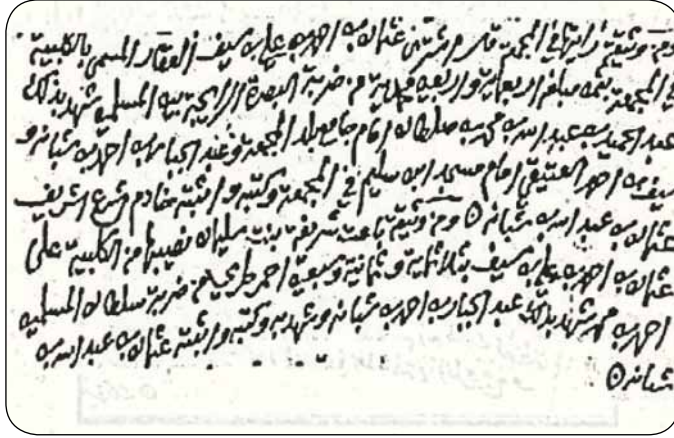 ومن وثيقة رأيتها في المجمعة قاسم اشترى عثمان بن احمد بن علي بن سيف العقار المسمى بالكلبية
في المجمعة بثمن مبلغ اربعماية واربعين محمدية من ضربة البصرة الرايجة بين المسلمين شهد بذلك
عبد الحميد بن عبد الله بن محمد بن سلطان امام جامع بلد المجمعة وعبد الجبار بن احمد بن شبانه و
سيف بن احمد العتيقي امام مسجد ابن سليم في المجمعة وكتبه واثبته خادم الشرع الشريف
عثمان بن عبد الله بن شبانه ومن وثيقة باعت شريفة بنت سليمان نصيبها من الكلبية على
عثمان بن احمد بن علي بن سيف بثلاثماية وثمانية وسبعين احمر من ضربة سلطان المسلمين
احمد بن محمد شهد بذلك عبد الجبار بن احمد بن شبانه وشهد به وكتبه واثبته عثمان بن عبد الله بن
شبانه